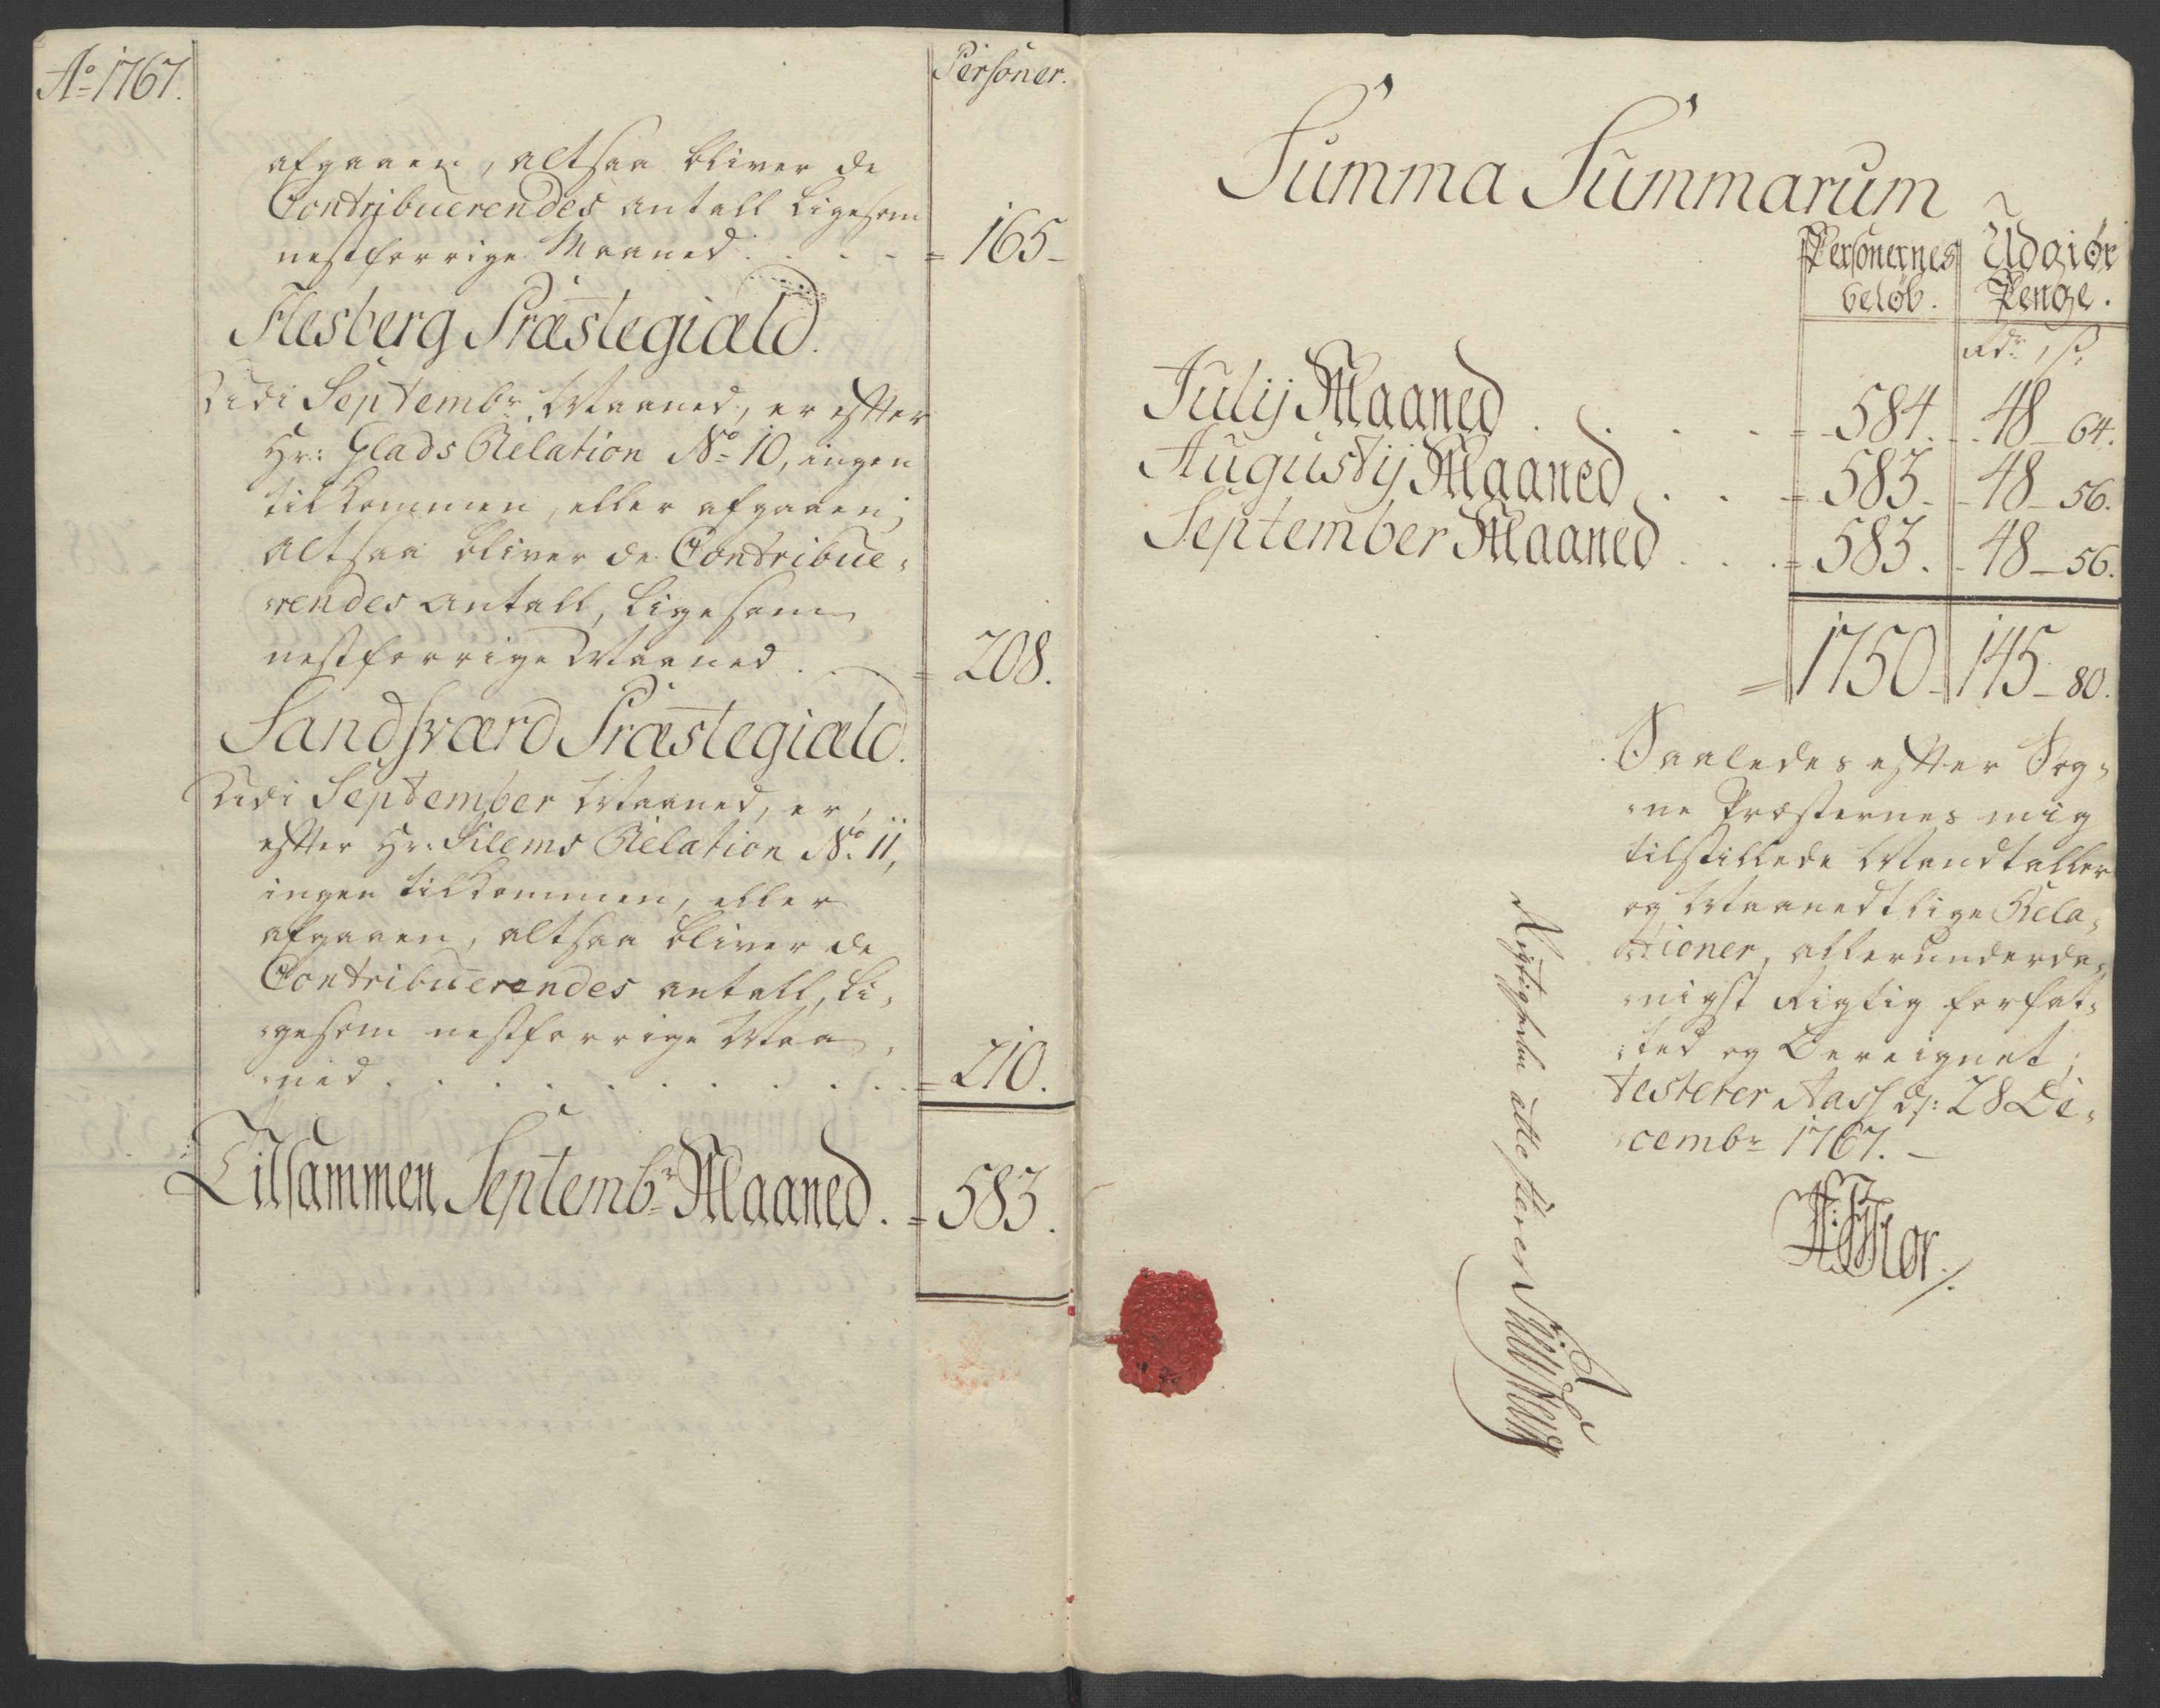 Ao 1767.
Personer.
afgaaen, altsaa bliver de
Contribuerendes antall ligesom
nestforrige Maaned . . . = 165 –
Flesberg Præstegiæld.
Udi Septembr Maaned, er efter
Hr: Glads Relation No 10, ingen
tilkommen, eller afgaaen;
altsaa bliver de Contribue-
rendes antall, ligesom
nestforrige Maaned . . . = 208.
Sandsværd Præstegiæld.
Udi September Maaned, er,
efter Hr: Relation No 11,
ingen tilkommen, eller
afgaaen, altsaa bliver de
Contribuerendes antall, li-
gesom nestforrige Maa-
ned . . . . . . . . . = 210.
Tilsammen Septembr Maaned. = 583.
Summa Summarum
Personernes beløb. Udgiør Penge.
Rdr, s
Julij Maaned . . . . = 584. 48 – 64.
Augustij Maaned . . . = 583 – 48 – 56.
September Maaned . . . = 583. 48 – 56.
= 1750 – 145 – 80.
Saaledes efter Sog-
ne Præsternes mig
tilstillede Mandtaller
og Maanedtlige Rela-
tioner, allerunderda-
nigst Rigtig forfat-
ted og Beregnet,
testerer Aass d: 28 De-
cembr 1767. –
Rigtigheden attesterer